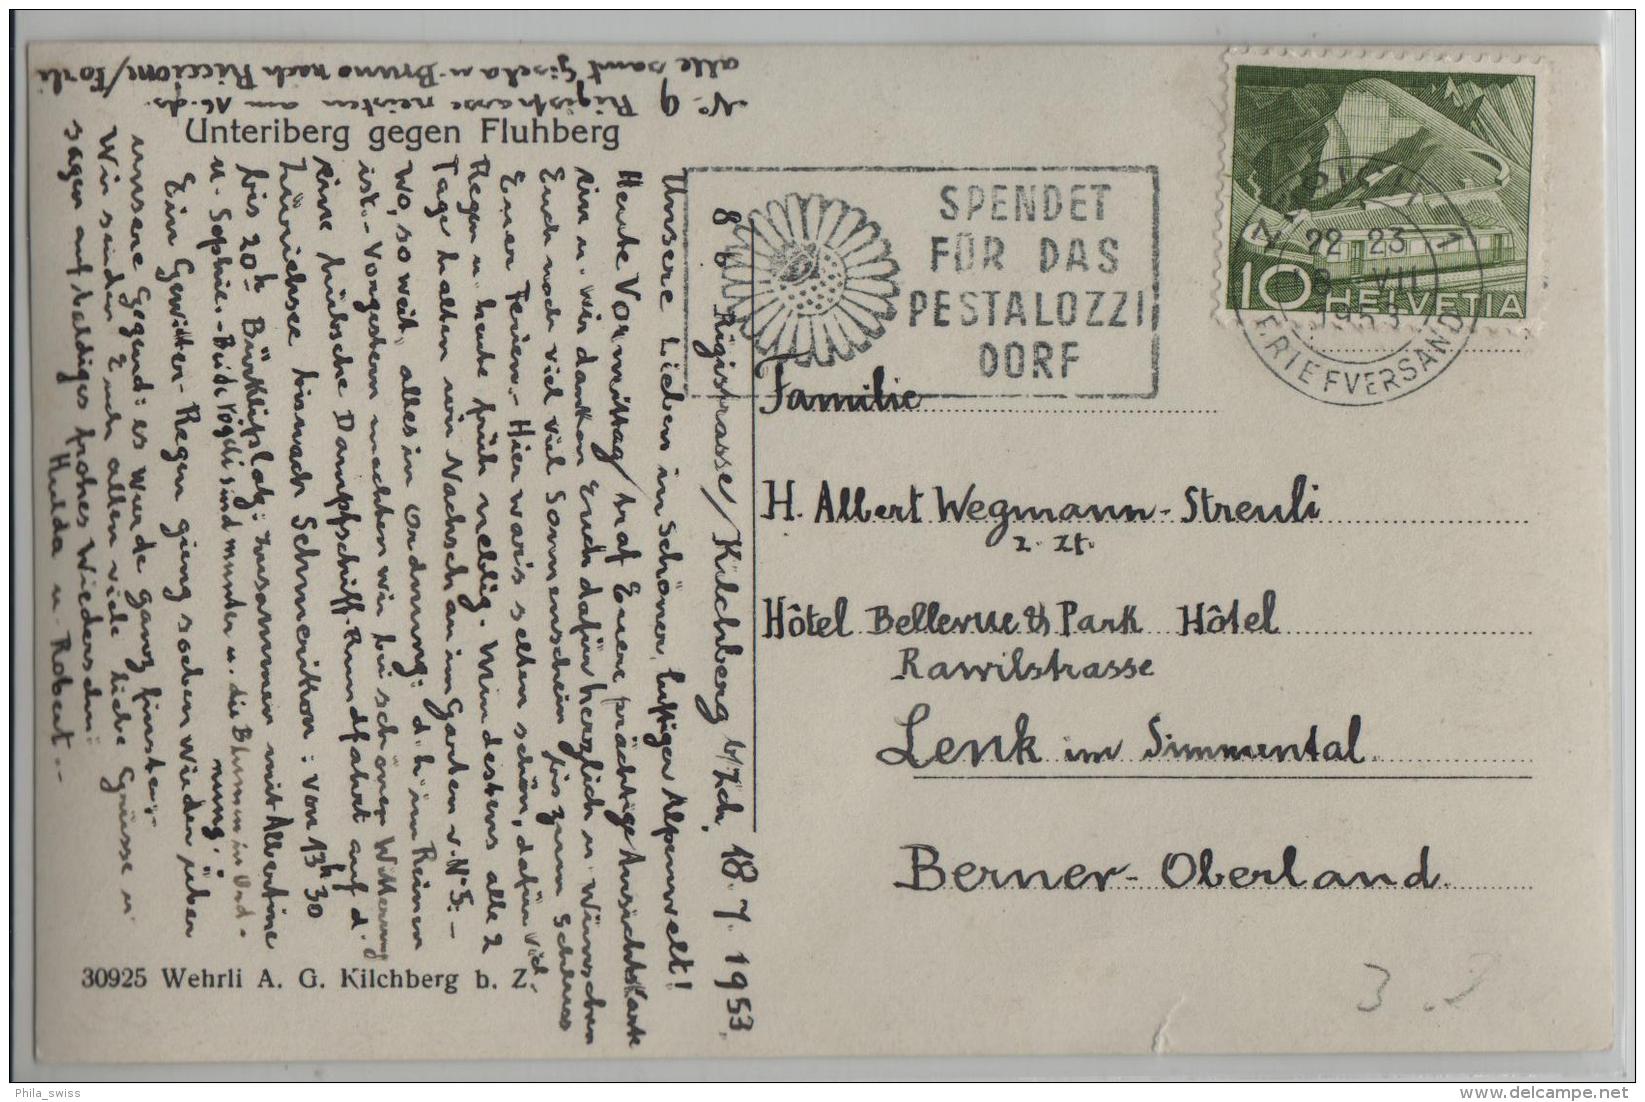 Nº 9 Rigistrasse reisten am 16. ds.
alle samt Gisela u. Bruno nach Riccione/Forli
Unteriberg gegen Fluhberg
8 b Rigistrasse/Kilchberg b/Zch, 18. 7. 1953.
Unsere Lieben in schöner, luftiger Alpenwelt!
Heute Vormittag traf Euere prächtige Ansichtskarte
ein u. wir danken Euch dafür herzlich u. wünschen
Euch noch viel viel Sonnenschein bis zum Schluss
Euer Ferien.- Hier war's selten schön, dafür viel
Regen u. heute früh neblig. Mindestens alle 2
Tage halten wir Nachschau im Garten v. Nº 5.-
Wo, so weit, alles in Ordnung: d. h. im Reinen
ist.- Vorgestern machten wir bei schöner Witterung
eine hübsche Dampfschiff-Rundfahrt auf d.
Zürichsee bis nach Schmerikon: von 13h 30
bis 20h Bürkliplatz: zusammen mit Albertine
u. Sophie.- Beide Vögeli sind munter u. die Blumen in Ord-
nung.-
Ein Gewitter-Regen gieng soeben wieder über
unsere Gegend: es wurde ganz finster;
Wir senden Euch allen viele liebe Grüsse u.
sagen auf baldiges frohes Wiedersehn:
Hulda u. Robert.-
30925 Wehrli A. G. Kilchberg b. Z.
SPENDET
FÜR DAS
PESTALOZZI
DORF
22-23
18. VII
1953
BRIEFVERSAND
10 HELVETIA
Familie
H. Albert Wegmann-Streuli
z. Zt.
Hôtel Bellevue & Park Hôtel
Rawilstrasse
Lenk im Simmental.
Berner-Oberland.
Phila_swiss
delcampe.net